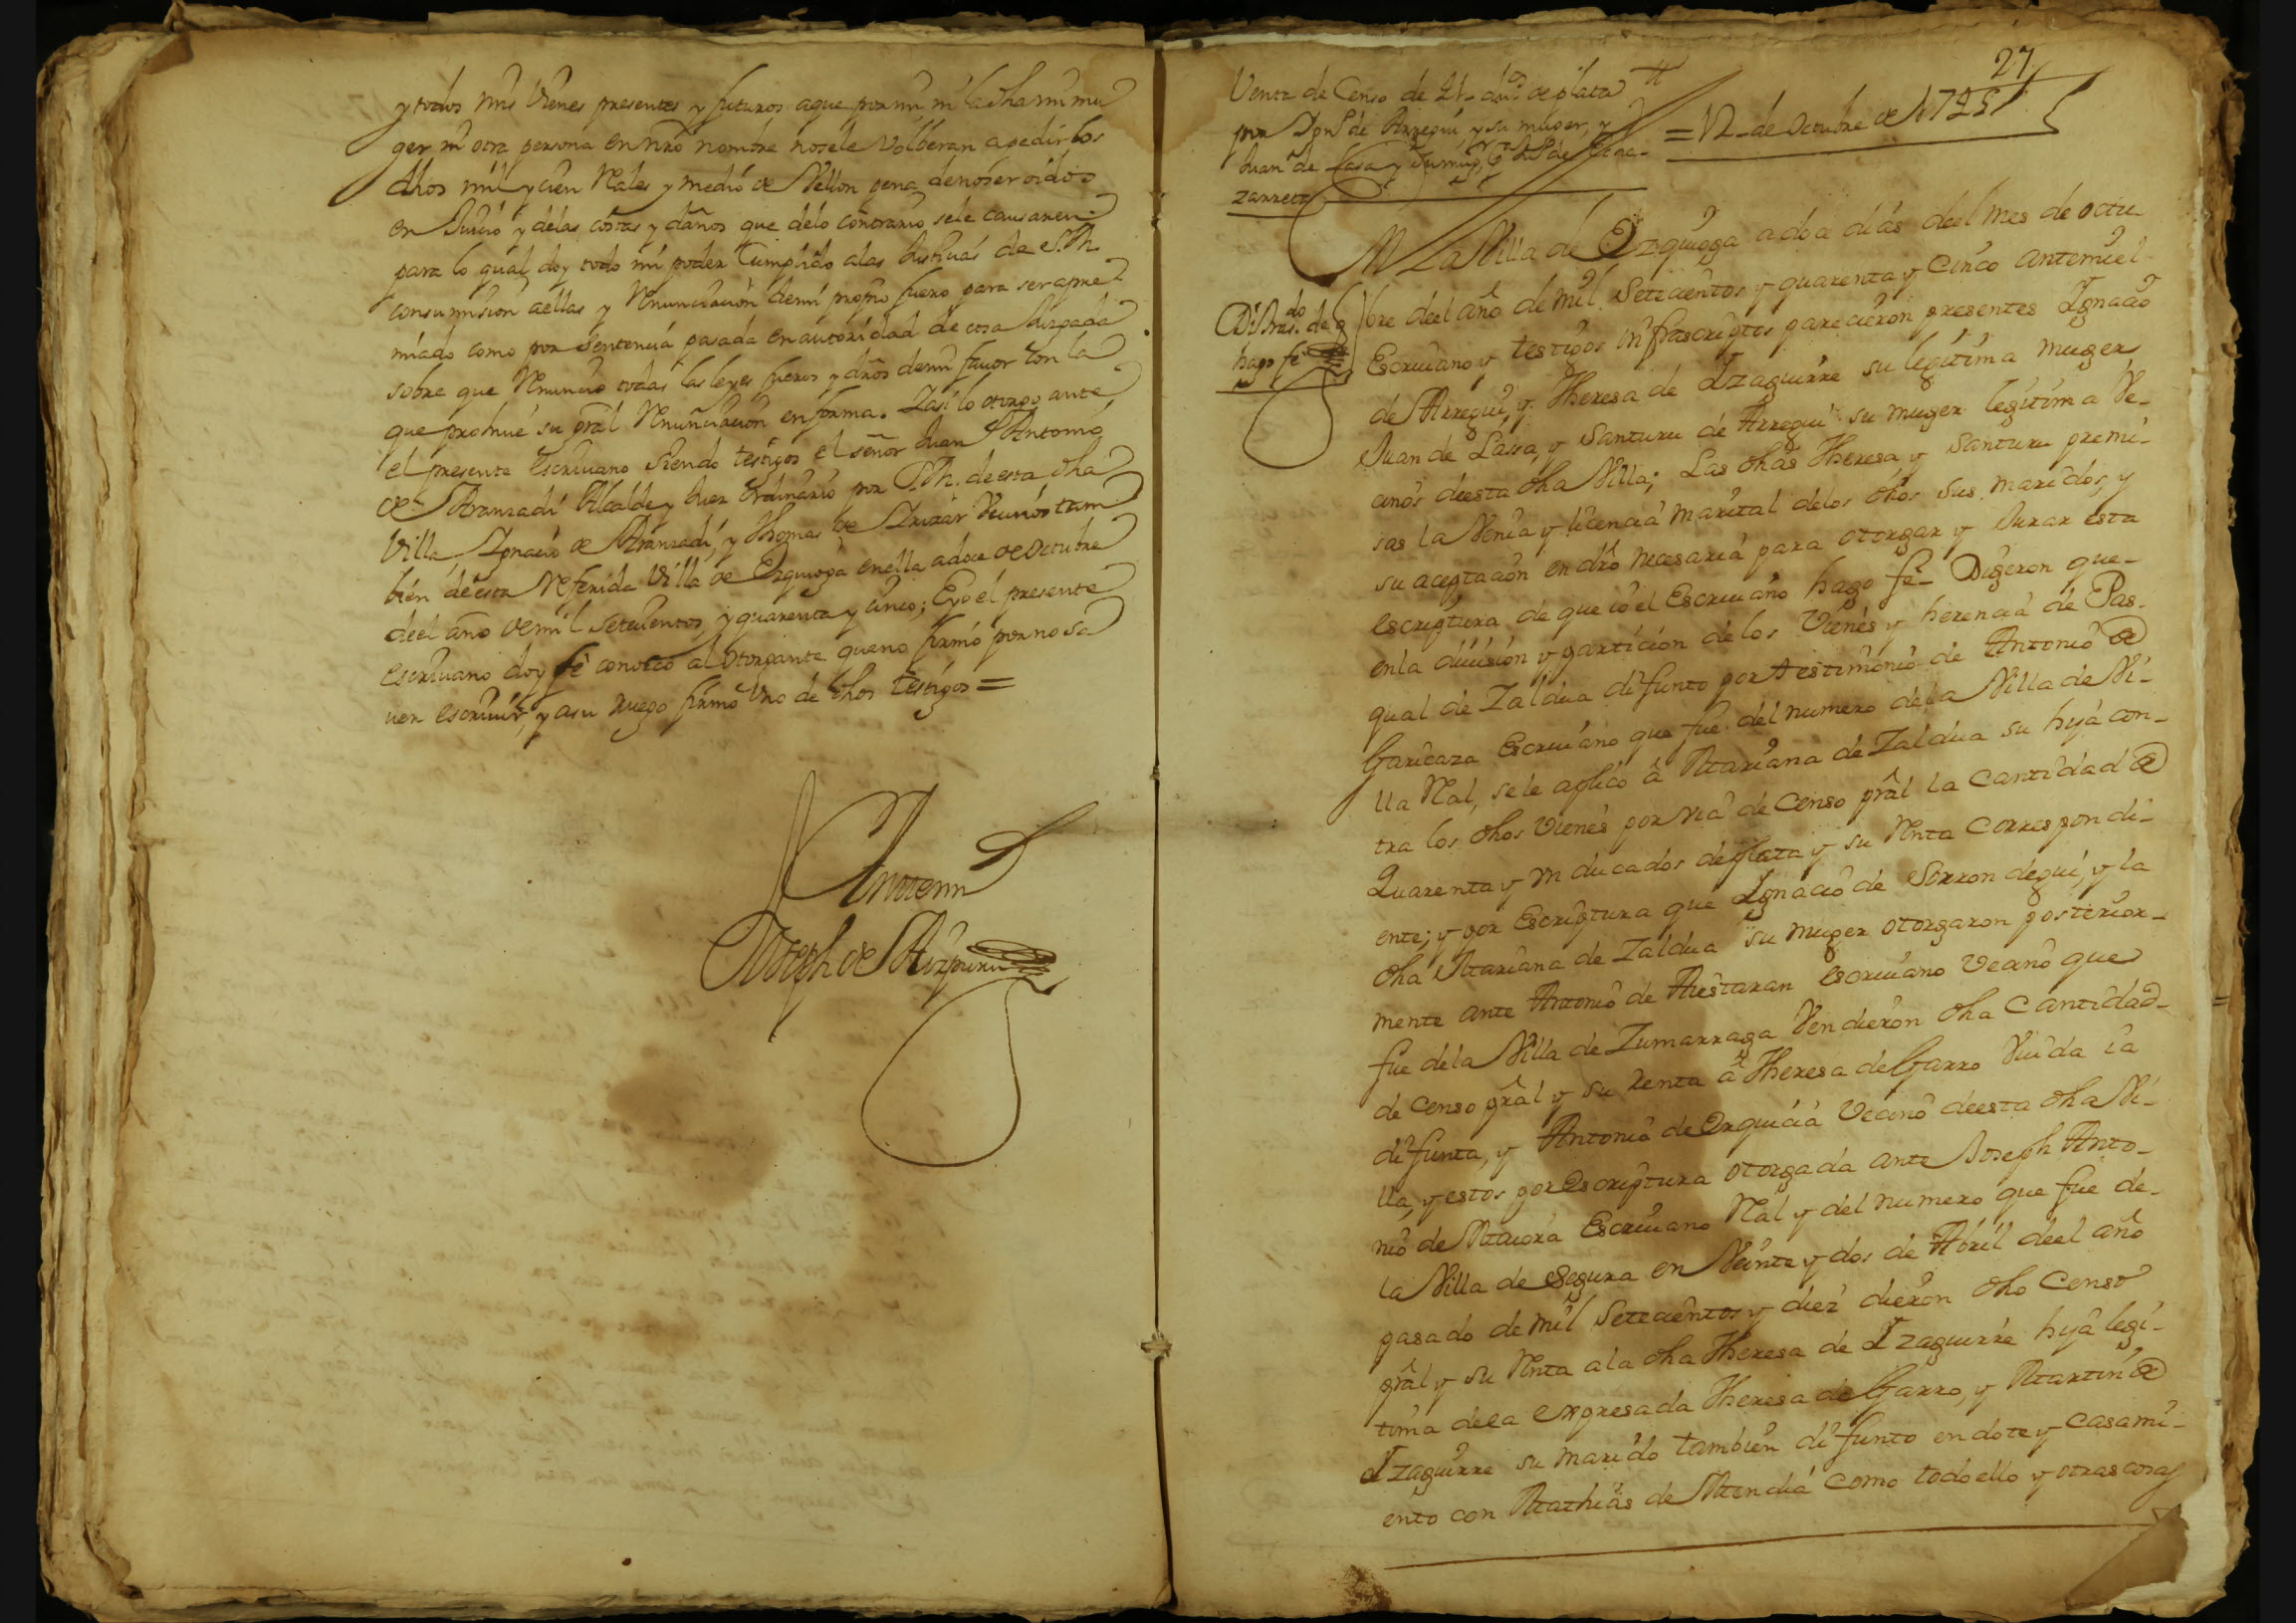 y todos mis vienes presentes y futuros a que por mi, ni la dha mi mu
ger ni otra persona en nrô nombre nosele volberan apedir los
dhos mil y cien Rales y medio de Vellon pena de no ser oidos
en Juicio y delas costas y daños que delo contrario sele causaren:
para lo qual doy todo mi poder Cumplido alas Justicias de S. M.
con sumision aellas y Renunciacion demi propio fuero para ser apre
miado como por Sentencia pasada en autoridad de cosa Juzgada
sobre que Renuncio todas las leyes fueros y drôs demi favor con la
que prohive su grâl Renunciacion en forma. Y asi lo otorgo ante
el presente escrivano siendo testigos el señor Juan Antonio
de Aranzadi Alcalde y Juez Ordinario por S. M. de esta dha
Villa, Ignacio de Aranzadi, y Thomas de Vecinos tam
bien de esta Referida Villa de Ezquioga en ella a doce de Octubre
deel año de mil setecientos, y quarenta y cinco; E yo el presente
escrivano doy fe conozco al Otorgante que no firmó por no sa
ver escrivir, y asu ruego firmó Uno de dhos testigos =
Antemi
Joseph de Aizpuru
27
Venta de Censo de 41 duc.os de plata
por Ign.o de Arregui y su muger, y
Juan de Lasa y su muger,
= 12 de Octubre de 1745
zarreta
En La Villa de Ezquioga a doce dias deel mes de octu
bre deel año de mil Setecientos y quarenta y Cinco antemi el
Di tras.do de q
hago fe
Escrivano y testigos infrascriptos parecieron presentes Ignacio
de Arregui, y Theresa de Izaguirre su legitima muger
Juan de Lassa, y Santuru de Arregui su muger legitima Ve-
cinos deesta dha Villa; Las dhas Theresa, y Santuru premi-
sas la Venia y licencia marital delos dhos sus maridos, y
su aceptacion en drô necesaria para otorgar y Jurar esta
escriptura de que io el Escrivano hago fe- Digeron que-
en la diuision y particion de los Vienes y herencia de Pas-
qual de Zaldua difunto por testimonio de Antonio de
Garicaza Escriuano que fue del numero dela Villa de Vi-
lla Rl, sele aplico â Mariana de Zaldua su hija con-
tra los dhos Vienes por via de Censo grâl la Cantidad de
Quarenta y un ducados de plata y su Renta Correspondi-
ente; y por Escriptura que Ignacio de Sorrondegui, y la
dha Mariana de Zaldua su muger otorgaron posterior-
mente ante Antonio de Aiestaran escriuano Vecino que
fue dela Villa de Zumarraga Vendieron dha Cantidad-
de censo grâl y su renta â Theresa de Garro Viuda ia
difunta, y Antonio de Orquicia Vecino deesta dha Vi-
lla, y estos por Escriptura otorgada ante Joseph Anto-
nio de Maiora Escriuano Rl y del numero que fue de-
la Villa de Segura en Veinte y dos de Abril deel año
pasado de mil Setecientos y diez dieron dho Censo
grâl y su Renta ala dha Theresa de Izaguirre hija legi-
tima dela expresada Theresa de Garro, y Martin de
Izaguirre su marido tambien difunto en dote y casami-
ento con Mathias de Mendia como todo ello y otras cosas